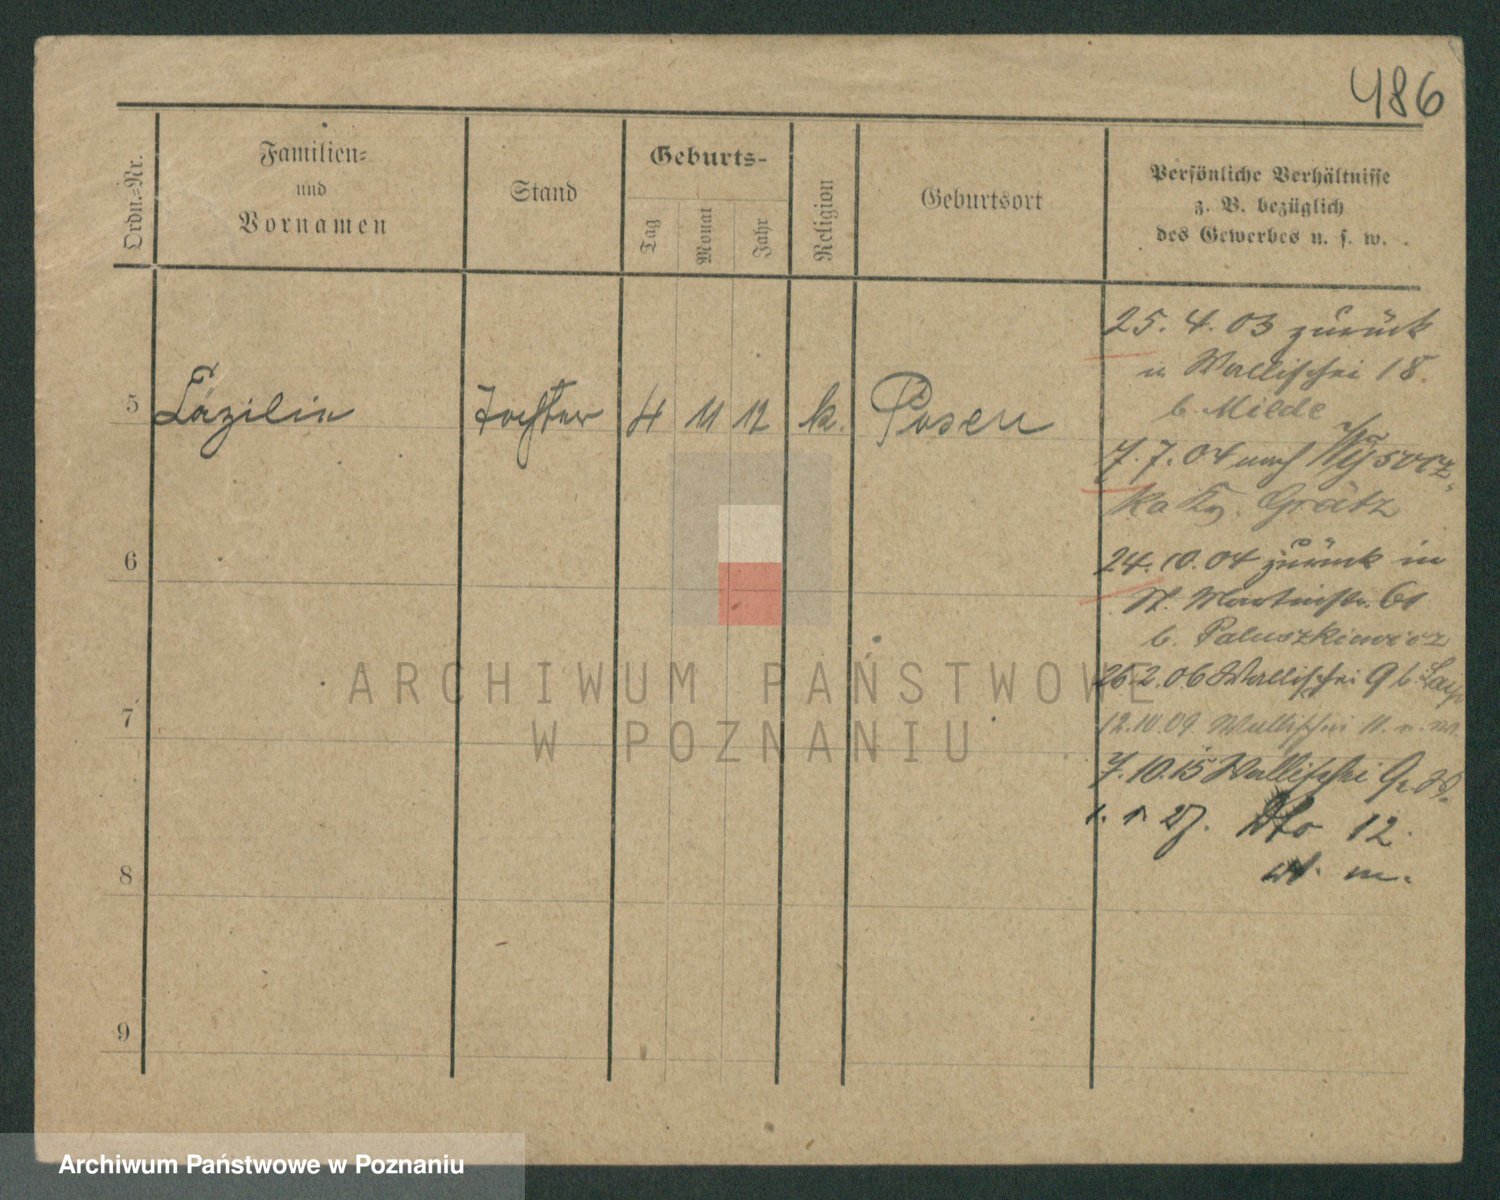 486
Ordn.-Nr.
Familien-
und
Vornamen
Stand
Geburts-
Tag
Monat
Jahr
Religion
Geburtsort
Persönliche Verhältnisse
z. B. bezüglich
des Gewerbes u. s. w.
5 Zäzilie Tochter 4 11 12 k. Posen
6
7
8
9
25. 4. 03 zurück
n Wallischei 18.
b. Milde
7. 7. 04 nach Wysocz-
ka Kr. Grätz
24. 10. 04 zurück in
St. Martinstr. 61
b. Paluszkiewicz
26. 2. 06 Wallischei 9 b.
12. 10. 09. Wallischei 11.
7. 10. 15 Wallischei 9
1. 1. 27. Dto 12.
ARCHIWUM PAŃSTWOWE
W POZNANIU
Archiwum Państwowe w Poznaniu